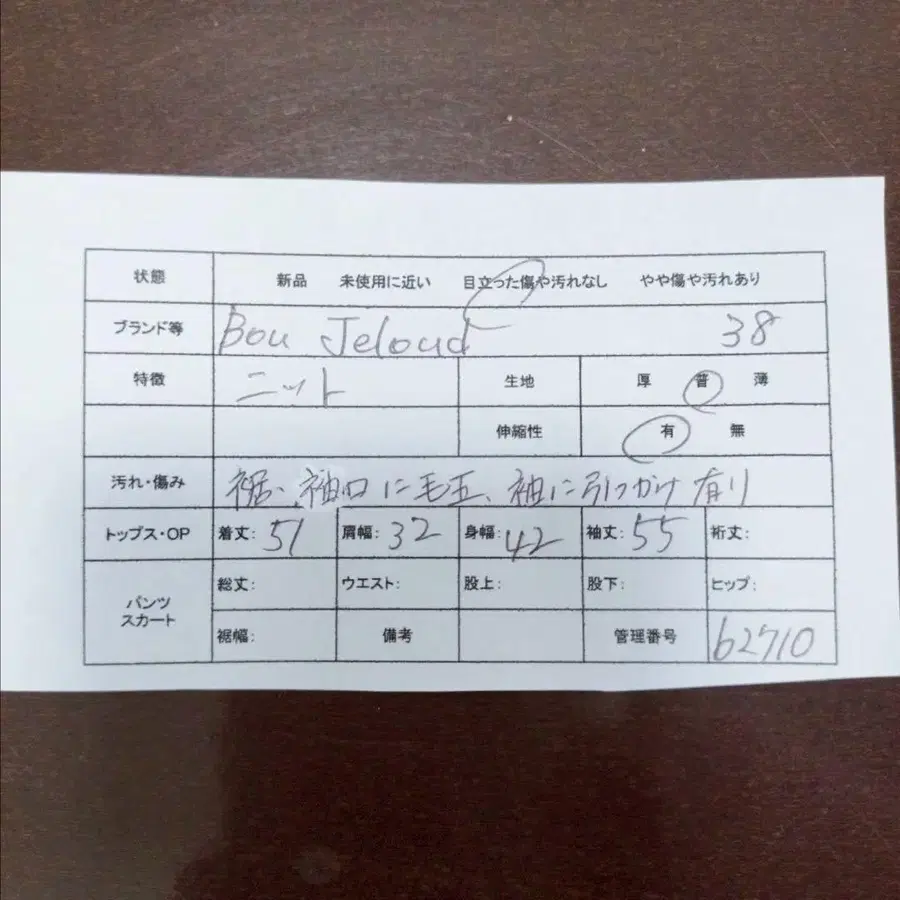 状態 新品 未使用に近い 目立った傷や汚れなし やや傷や汚れあり
ブランド等 Bou Jeloud 38
特徴 ニット 生地 厚 普 薄
伸縮性 有 無
汚れ・傷み 裾、袖口に毛玉、袖に引っかけ有り
トップス・OP 着丈: 51 肩幅: 32 身幅: 42 袖丈: 55 裄丈:
パンツ スカート 総丈: ウエスト: 股上: 股下: ヒップ:
裾幅: 備考 管理番号 62710